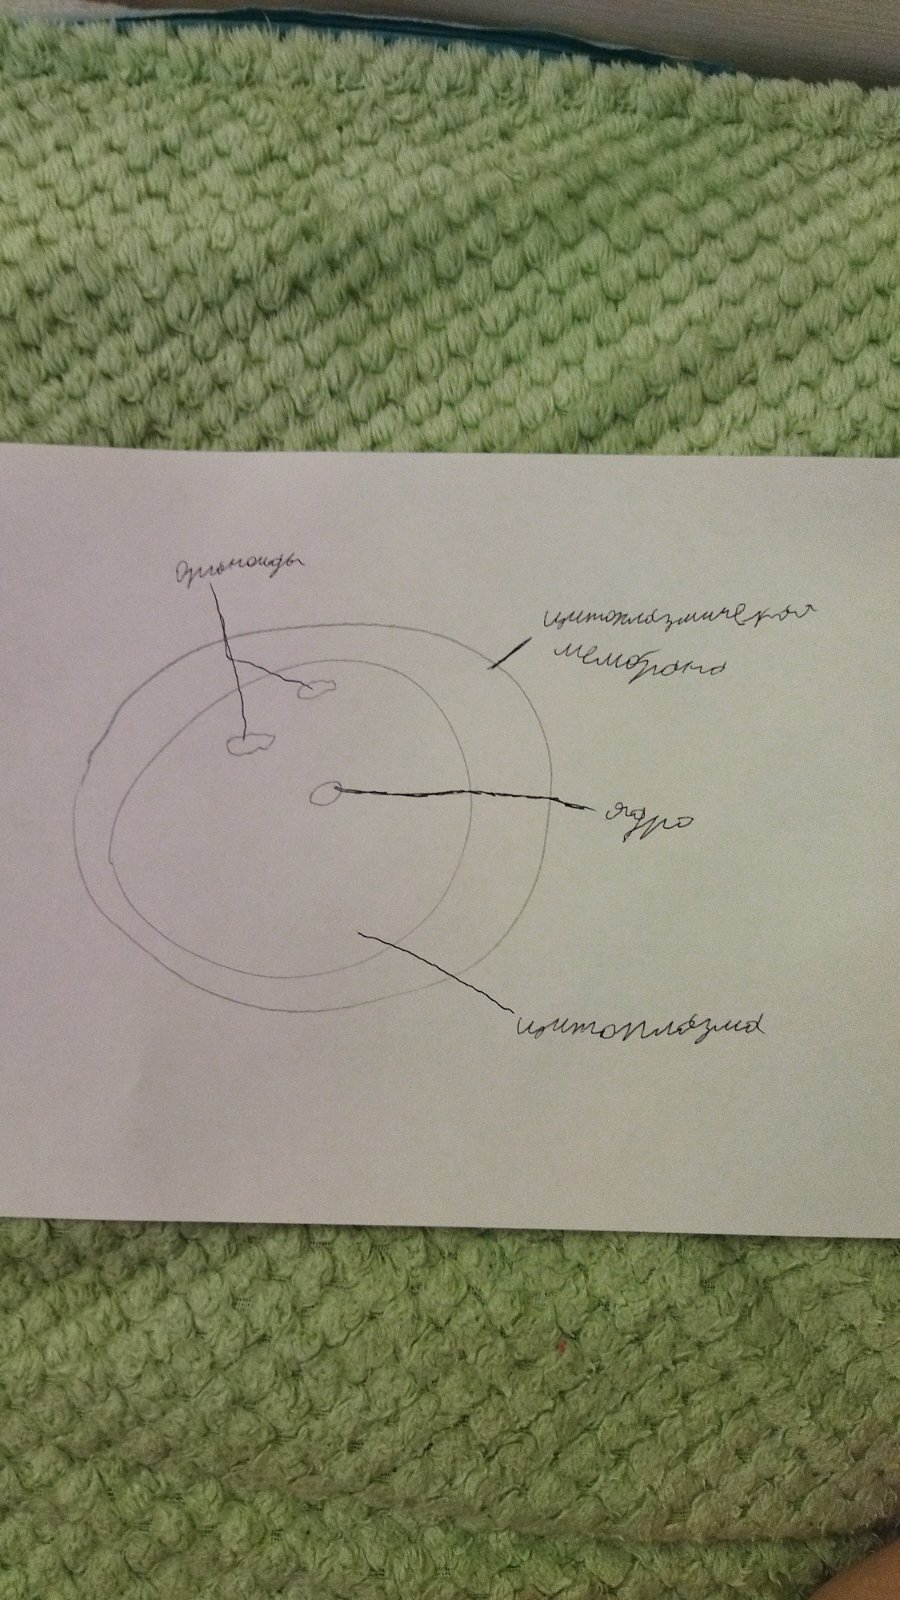 Органоиды
цитоплазмическая
мембрана
ядро
цитоплазма